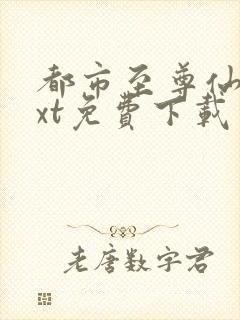 都市至尊仙
xt免費下載
老唐数字君